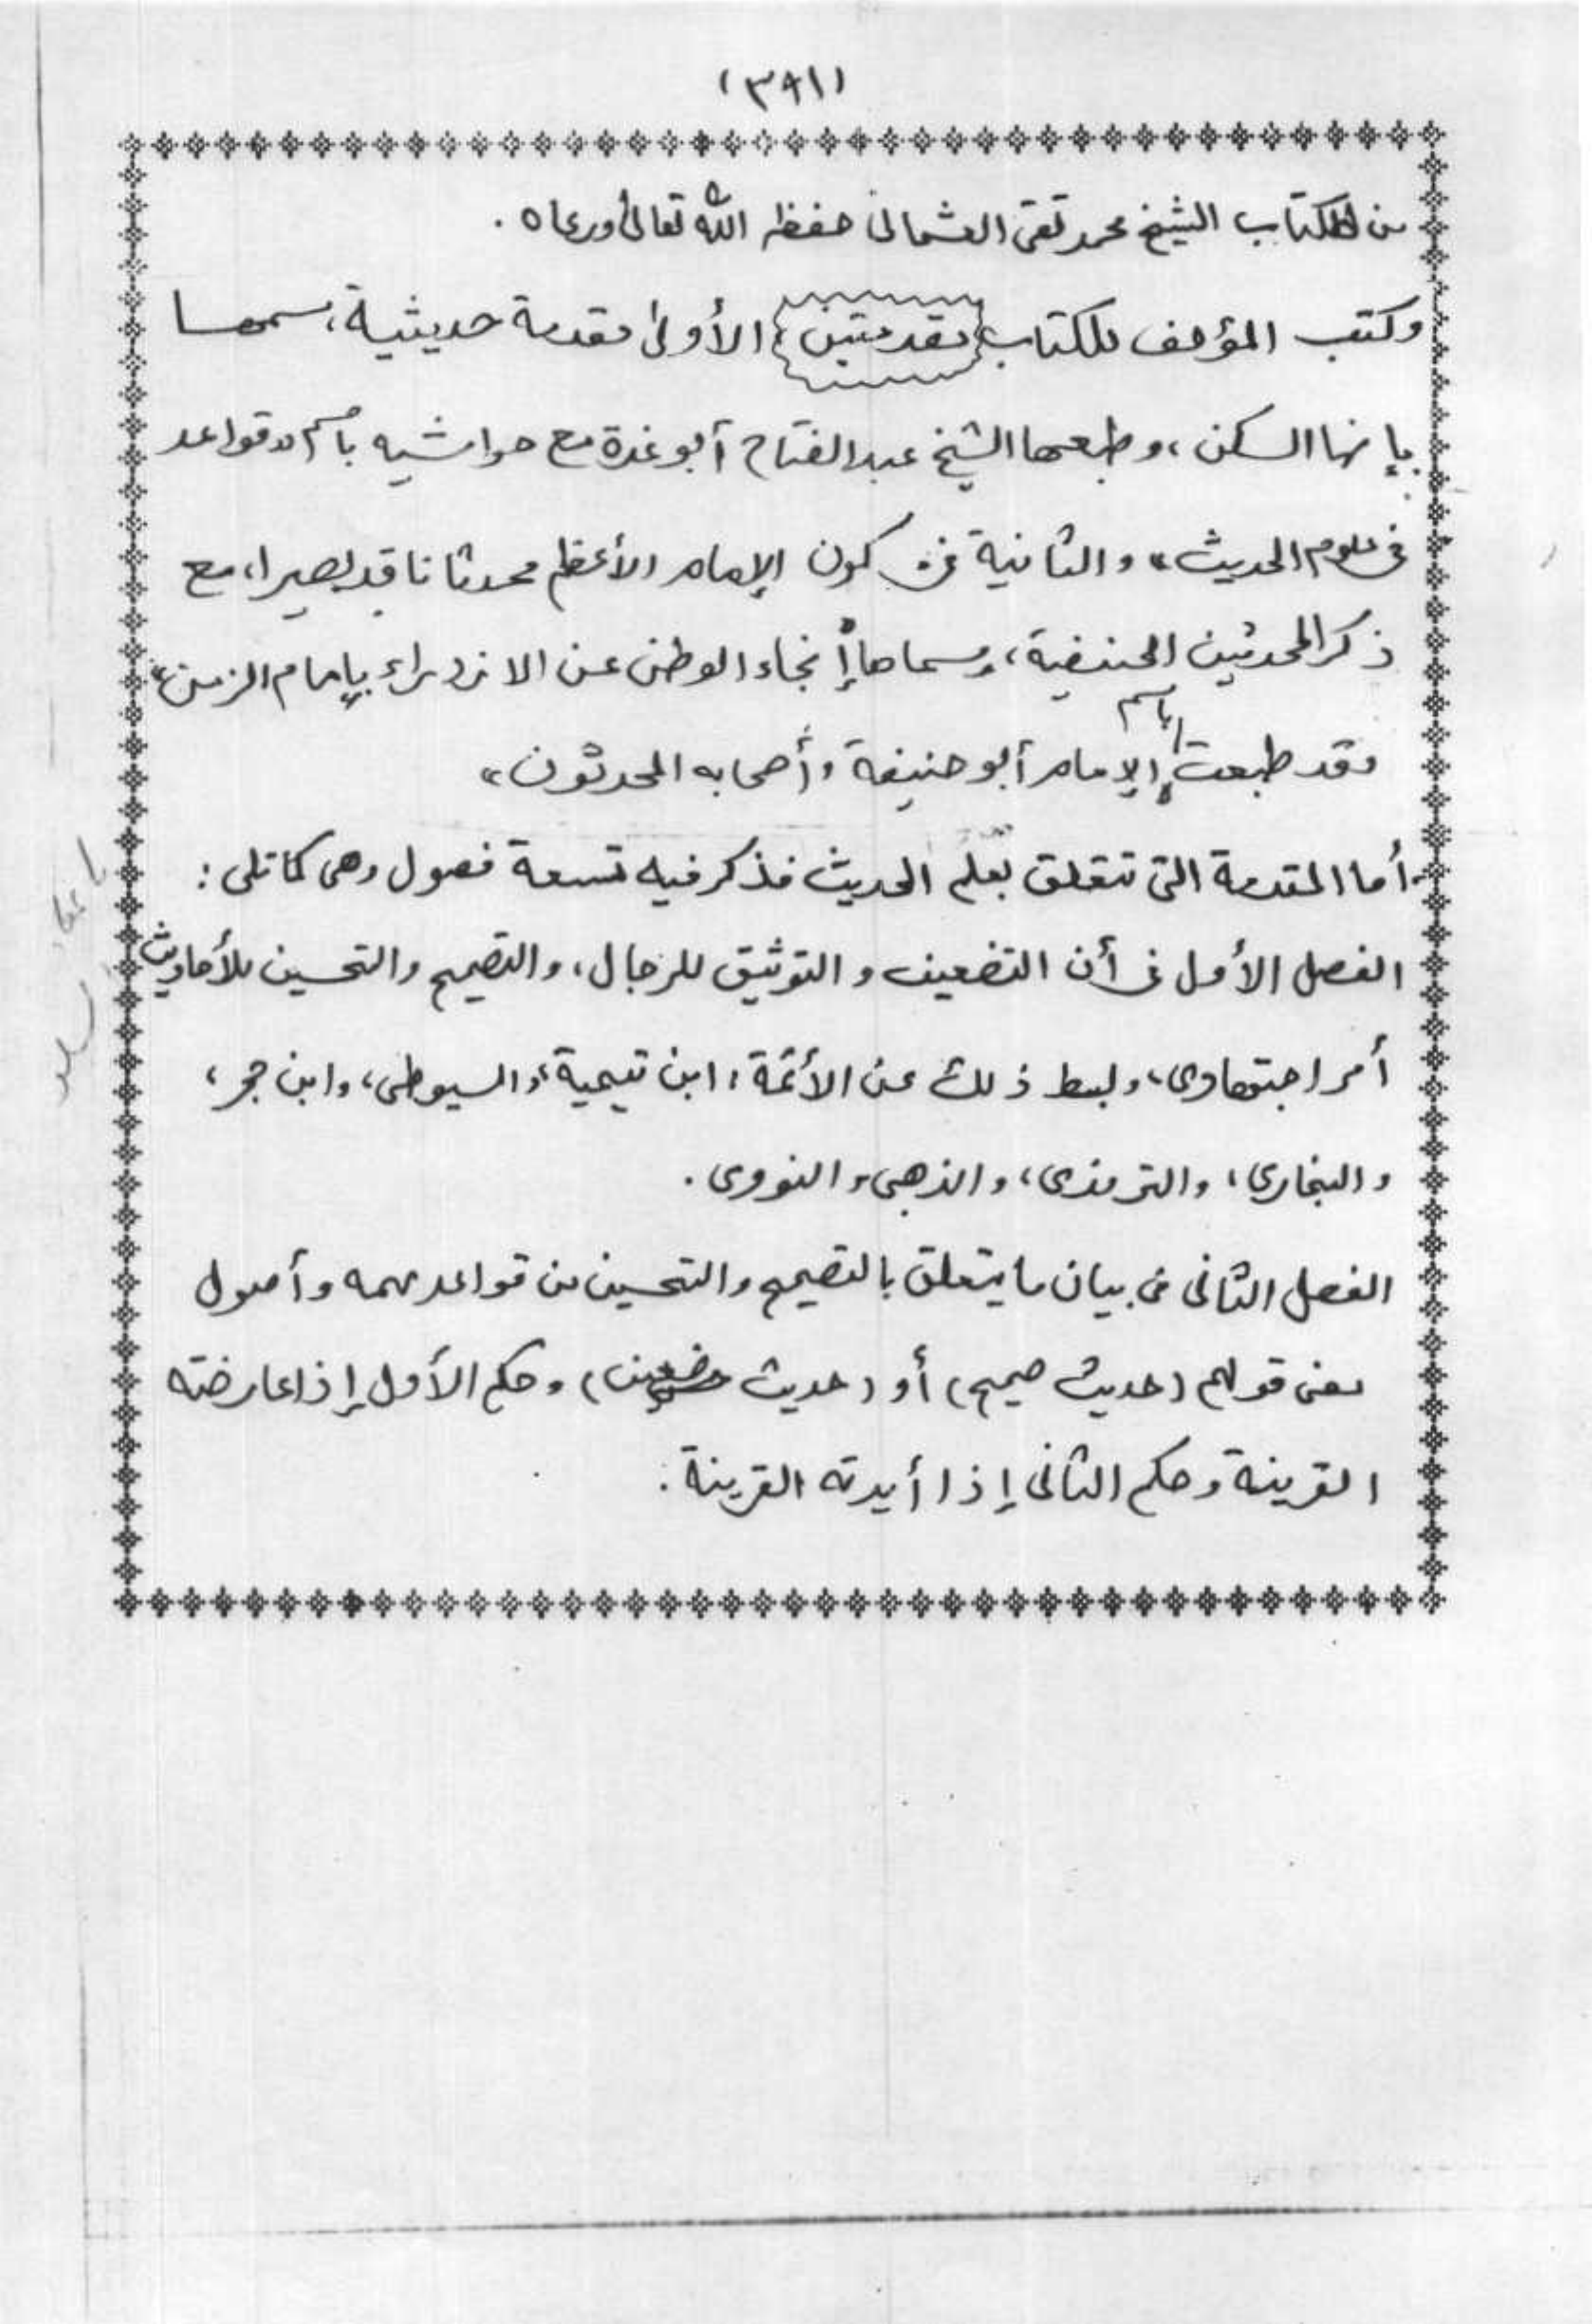 (٣٩١)
من الكتاب الشيخ محمد تقي العثماني حفظه الله تعالى ورعاه .
وكتب المؤلف للكتاب مقدمتين الأولى مقدمة حديثية، سمها
بإنها السكن، وطبعها الشيخ عبد الفتاح أبو غدة مع حواشيه باسم "قواعد
في علوم الحديث" والثانية في كون الإمام الأعظم محدثا ناقد بصيرا، مع
ذكر المحدثين الحنفية، وسماها إنجاء الوطن عن الازدراء بإمام الزمن"
وقد طبعت باسم الإمام أبو حنيفة وأصحابه المحدثون"
أما المقدمة التي تتعلق بعلم الحديث فذكر فيه تسعة فصول وهي كما تلي :
الفصل الأول في أن التضعيف و التوثيق للرجال، والتصحيح والتحسين للأحاديث
أمر اجتهادي، وبسط ذلك عن الأئمة، ابن تيمية، والسيوطي، وابن حجر،
والبخاري، والترمذي، والذهبي، والنووي .
الفصل الثاني في بيان ما يتعلق بالتصحيح والتحسين من قواعد مهمه وأصول
معنى قولهم (حديث صحيح) أو (حديث ضعيف) وحكم الأول إذا عارضته
القرينة وحكم الثاني إذا أيدته القرينة .